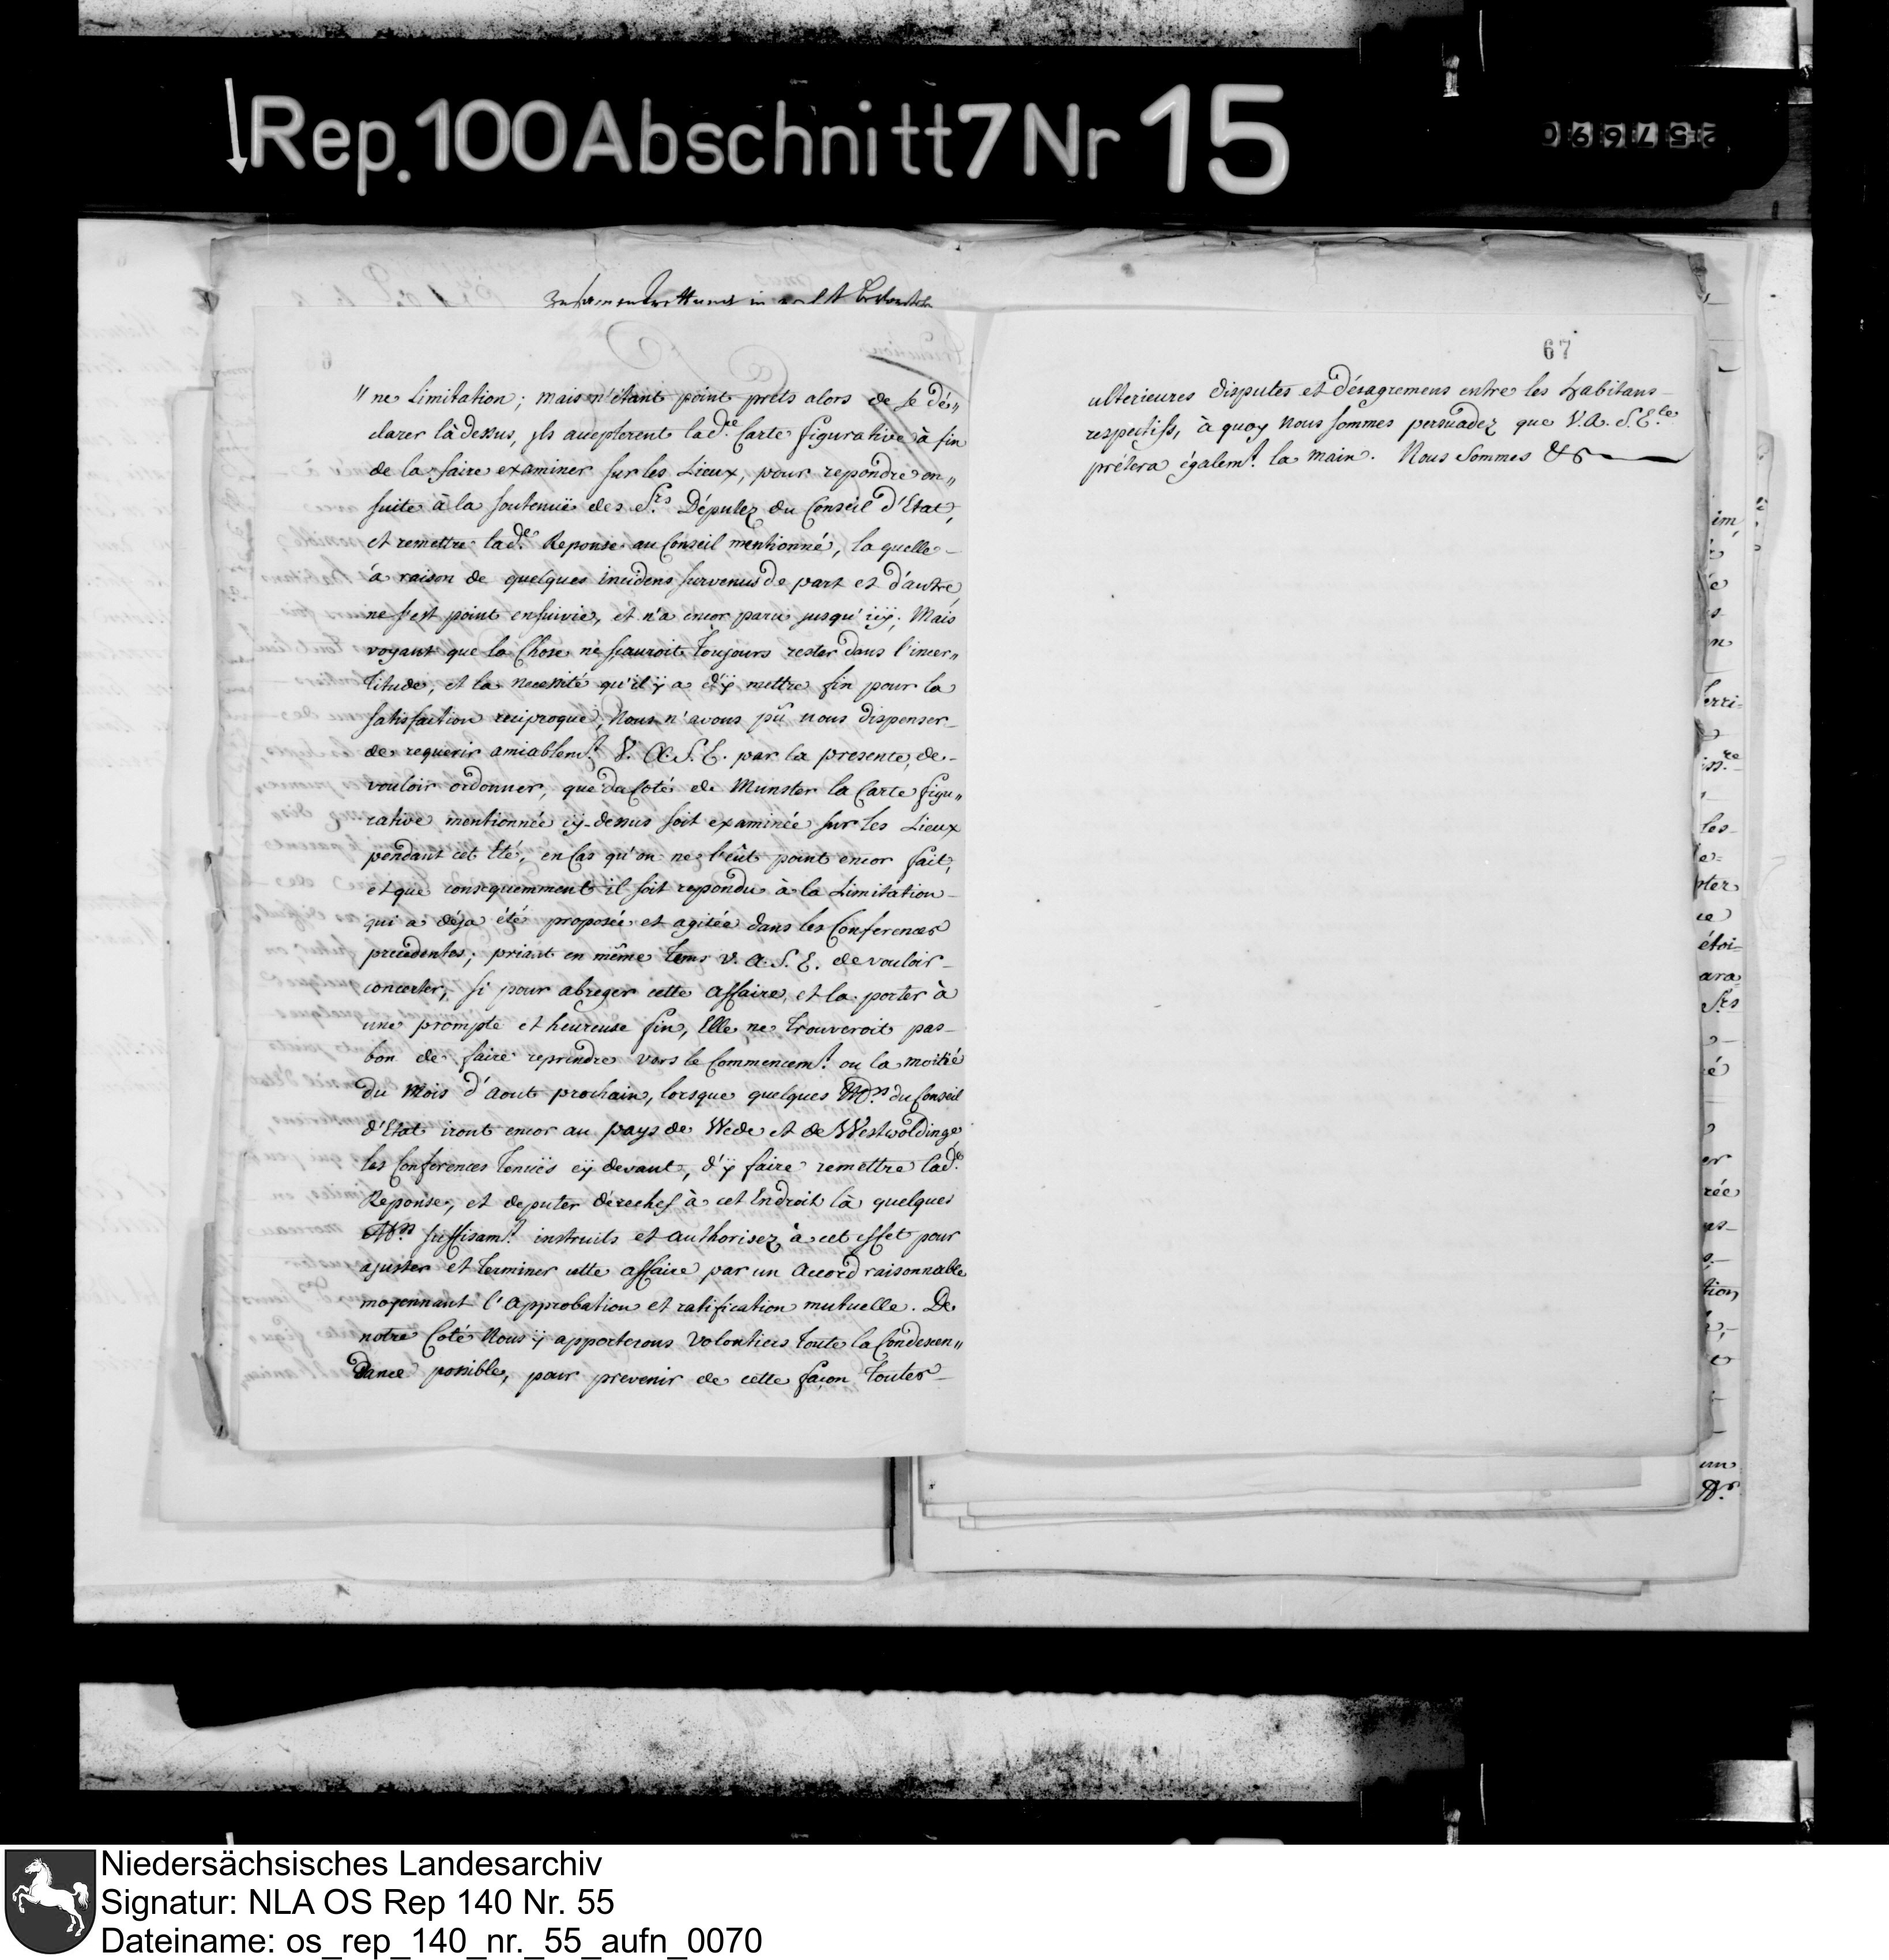 Rep. 100 Abschnitt 7 Nr 15
257690
67
„ne Limitation; mais n'étant point prets alors de se dé„
clarer là dessus, jls accepterent lad.re Carte figurative à fin
de la faire examiner sur les Lieux, pour repondre en„
suite à la soutenuë des S.rs Députez du Conseil d'Etat,
et remettre lad.e Reponse au Conseil mentionné, la quelle
à raison de quelques incidens survenus de part et d'autre,
ne s'est point ensuivie, et n'a encor paru jusqu'icÿ; Mais
voyant que la Chose ne sçauroit Toujours rester dans l'incer„
titude, et la necessité qu'il ÿ a d'ÿ mettre fin pour la
satisfaction reciproque, Nous n'avons pû nous dispenser
de requerir amiablem.t V. A. S. E. par la presente, de
vouloir ordonner, que du Coté de Munster la Carte figu„
rative mentionnée cÿ-dessus soit examinée sur les Lieux
pendant cet Eté, en Cas qu'on ne l'eût point encor fait,
et que consequemment il soit repondu à la Limitation
qui a déja été proposée et agitée dans les Conferences
precedentes; priant en même Tems V. A. S. E. de vouloir
concerter, si pour abreger cette affaire, et la porter à
une prompte et heureuse fin, Elle ne Trouveroit pas
bon de faire reprendre vers le Commencem.t ou la moitié
du Mois d'Aout prochain, lorsque quelques du Conseil
d'Etat iront encor au pays de Wede et de Westwoldinge
les Conferences Tenuës cÿ devant, d'ÿ faire remettre lad.e
Reponse, et deputer derechef à cet Endroit là quelques
suffisam.t instruits et authorisez à cet effet pour
ajuster et Terminer cette affaire par un Accord raisonnable
moyennant l'Approbation et ratification mutuelle. De
notre Coté Nous ÿ apporterons volontiers toute la Condescen„
dance possible, pour prevenir de cette façon Toutes
ulterieures disputes et désagremens entre les habitans
respectifs, à quoy Nous sommes persuadez que V. A. S. E.le
prétera égalem.t la main. Nous Sommes &c
Niedersächsisches Landesarchiv
Signatur: NLA OS Rep 140 Nr. 55
Dateiname: os_rep_140_nr._55_aufn_0070